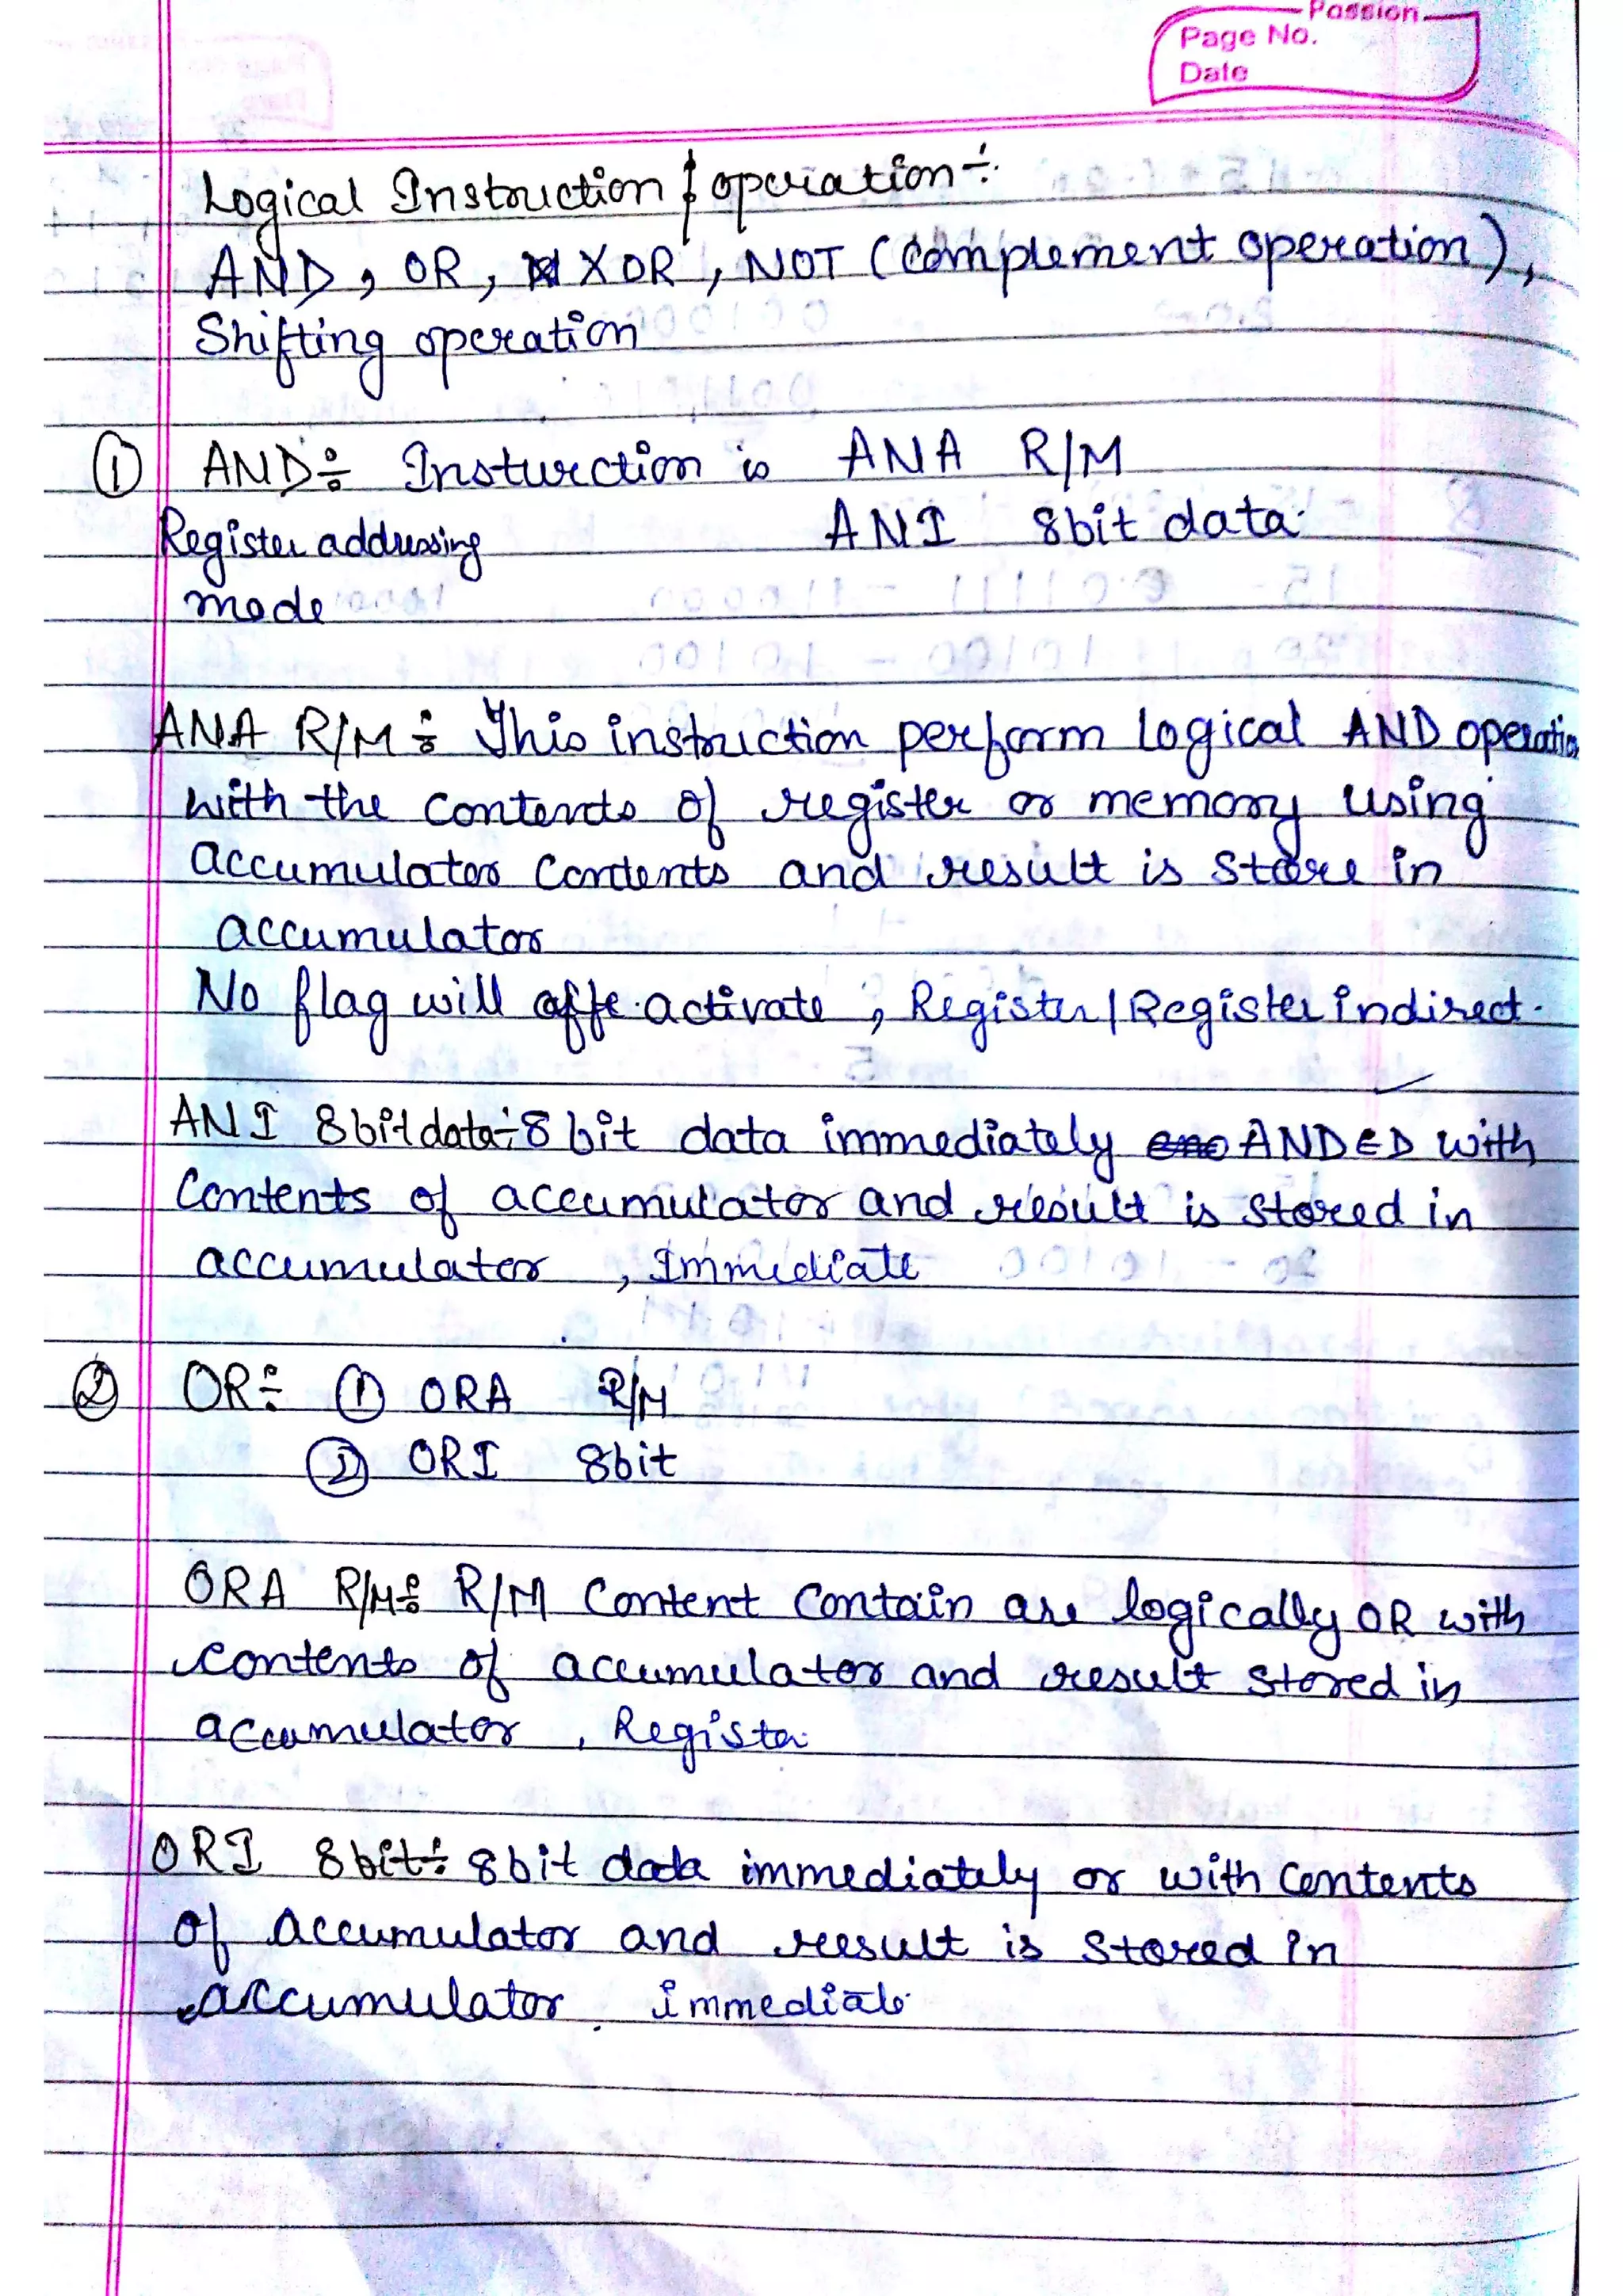 Passion
Page No.
Date
Logical Instruction & operation ÷
AND, OR, XOR, NOT (Complement operation),
Shifting operation
① AND ÷ Insturction is ANA R/M
Register addressing ANI 8bit data.
mode
ANA R/M ÷ This instruction perform logical AND operation
with the contents of register or memory using
accumulator contents and result is store in
accumulator
No flag will affe activate, Register/Register indirect.
ANI 8bit data ÷ 8 bit data immediately ANDED with
Contents of accumulator and result is stored in
accumulator, Immediate
② OR ÷ ① ORA R/M
② ORI 8bit
ORA R/M ÷ R/M Content Contain are logically OR with
contents of accumulator and result stored in
accumulator, Register
ORI 8bit ÷ 8bit data immediately or with Contents
of accumulator and result is stored in
accumulator. immediate